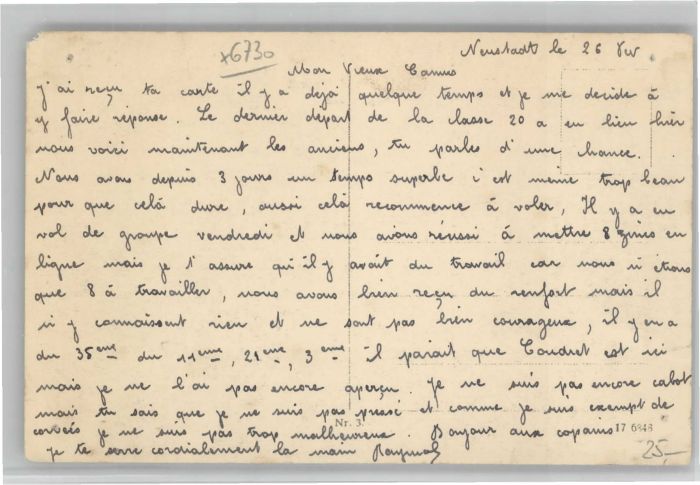 x6730
Neustadt le 26 Fev
Mon Vieux Camus
j'ai reçu ta carte il y a dejà quelque temps et je me decide à
y faire réponse. Le dernier départ de la classe 20 a eu lieu hier
nous voici maintenant les anciens, tu parles d'une chance.
Nous avons depuis 3 jours un temps superbe c'est meme trop beau
pour que celà dure, aussi celà recommence à voler, Il y a eu
vol de groupe vendredi et nous avons réussi à mettre 8 zincs en
ligne mais je t'assure qu'il y avait du travail car nous n'étions
que 8 à travailler, nous avons bien reçu du renfort mais il
n'y connaissent rien et ne sont pas bien courageux, il y en a
du 35eme du 11eme, 21eme, 3eme il parait que Coudret est ici
mais je ne l'ai pas encore aperçu. Je ne suis pas encore cabot
mais tu sais que je ne suis pas pressé et comme je suis exempt de
corvées je ne suis pas trop malheureux. Bonjour aux copains
Nr. 3. 17 6848
je te serre cordialement la main Raymond
25,-